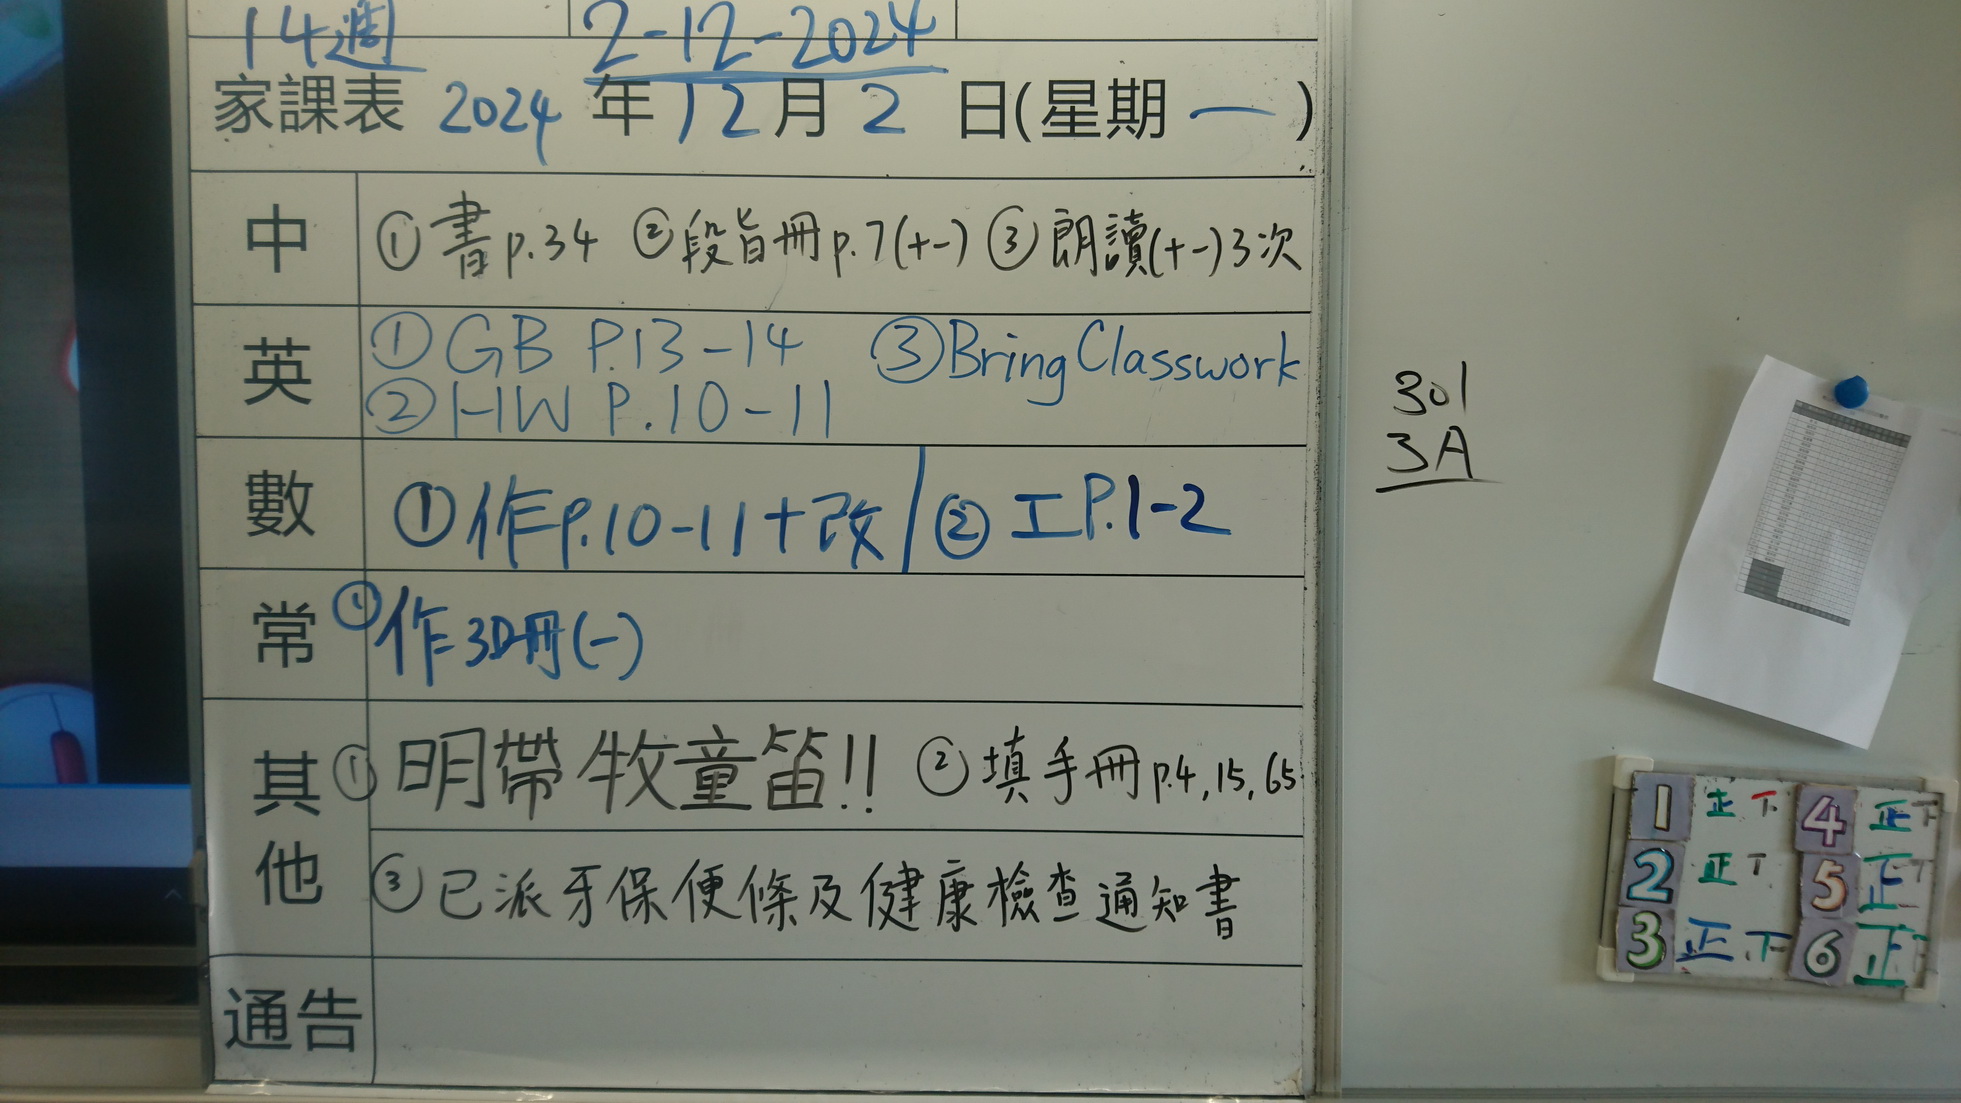 14週 2-12-2024
家課表 2024 年 12 月 2 日(星期 一 )
中 ①書p.34 ②段旨冊p.7(十一) ③朗讀(十一)3次
英 ①GB P.13-14 ③Bring Classwork
②HW P.10-11
數 ①作p.10-11+改 ②工P.1-2
常 ①作3D冊(一)
其他 ①明帶牧童笛!! ②填手冊p.4,15,65
③已派牙保便條及健康檢查通知書
通告
301
3A
1 正下 4 正下
2 正丅 5 正丅
3 正下 6 正